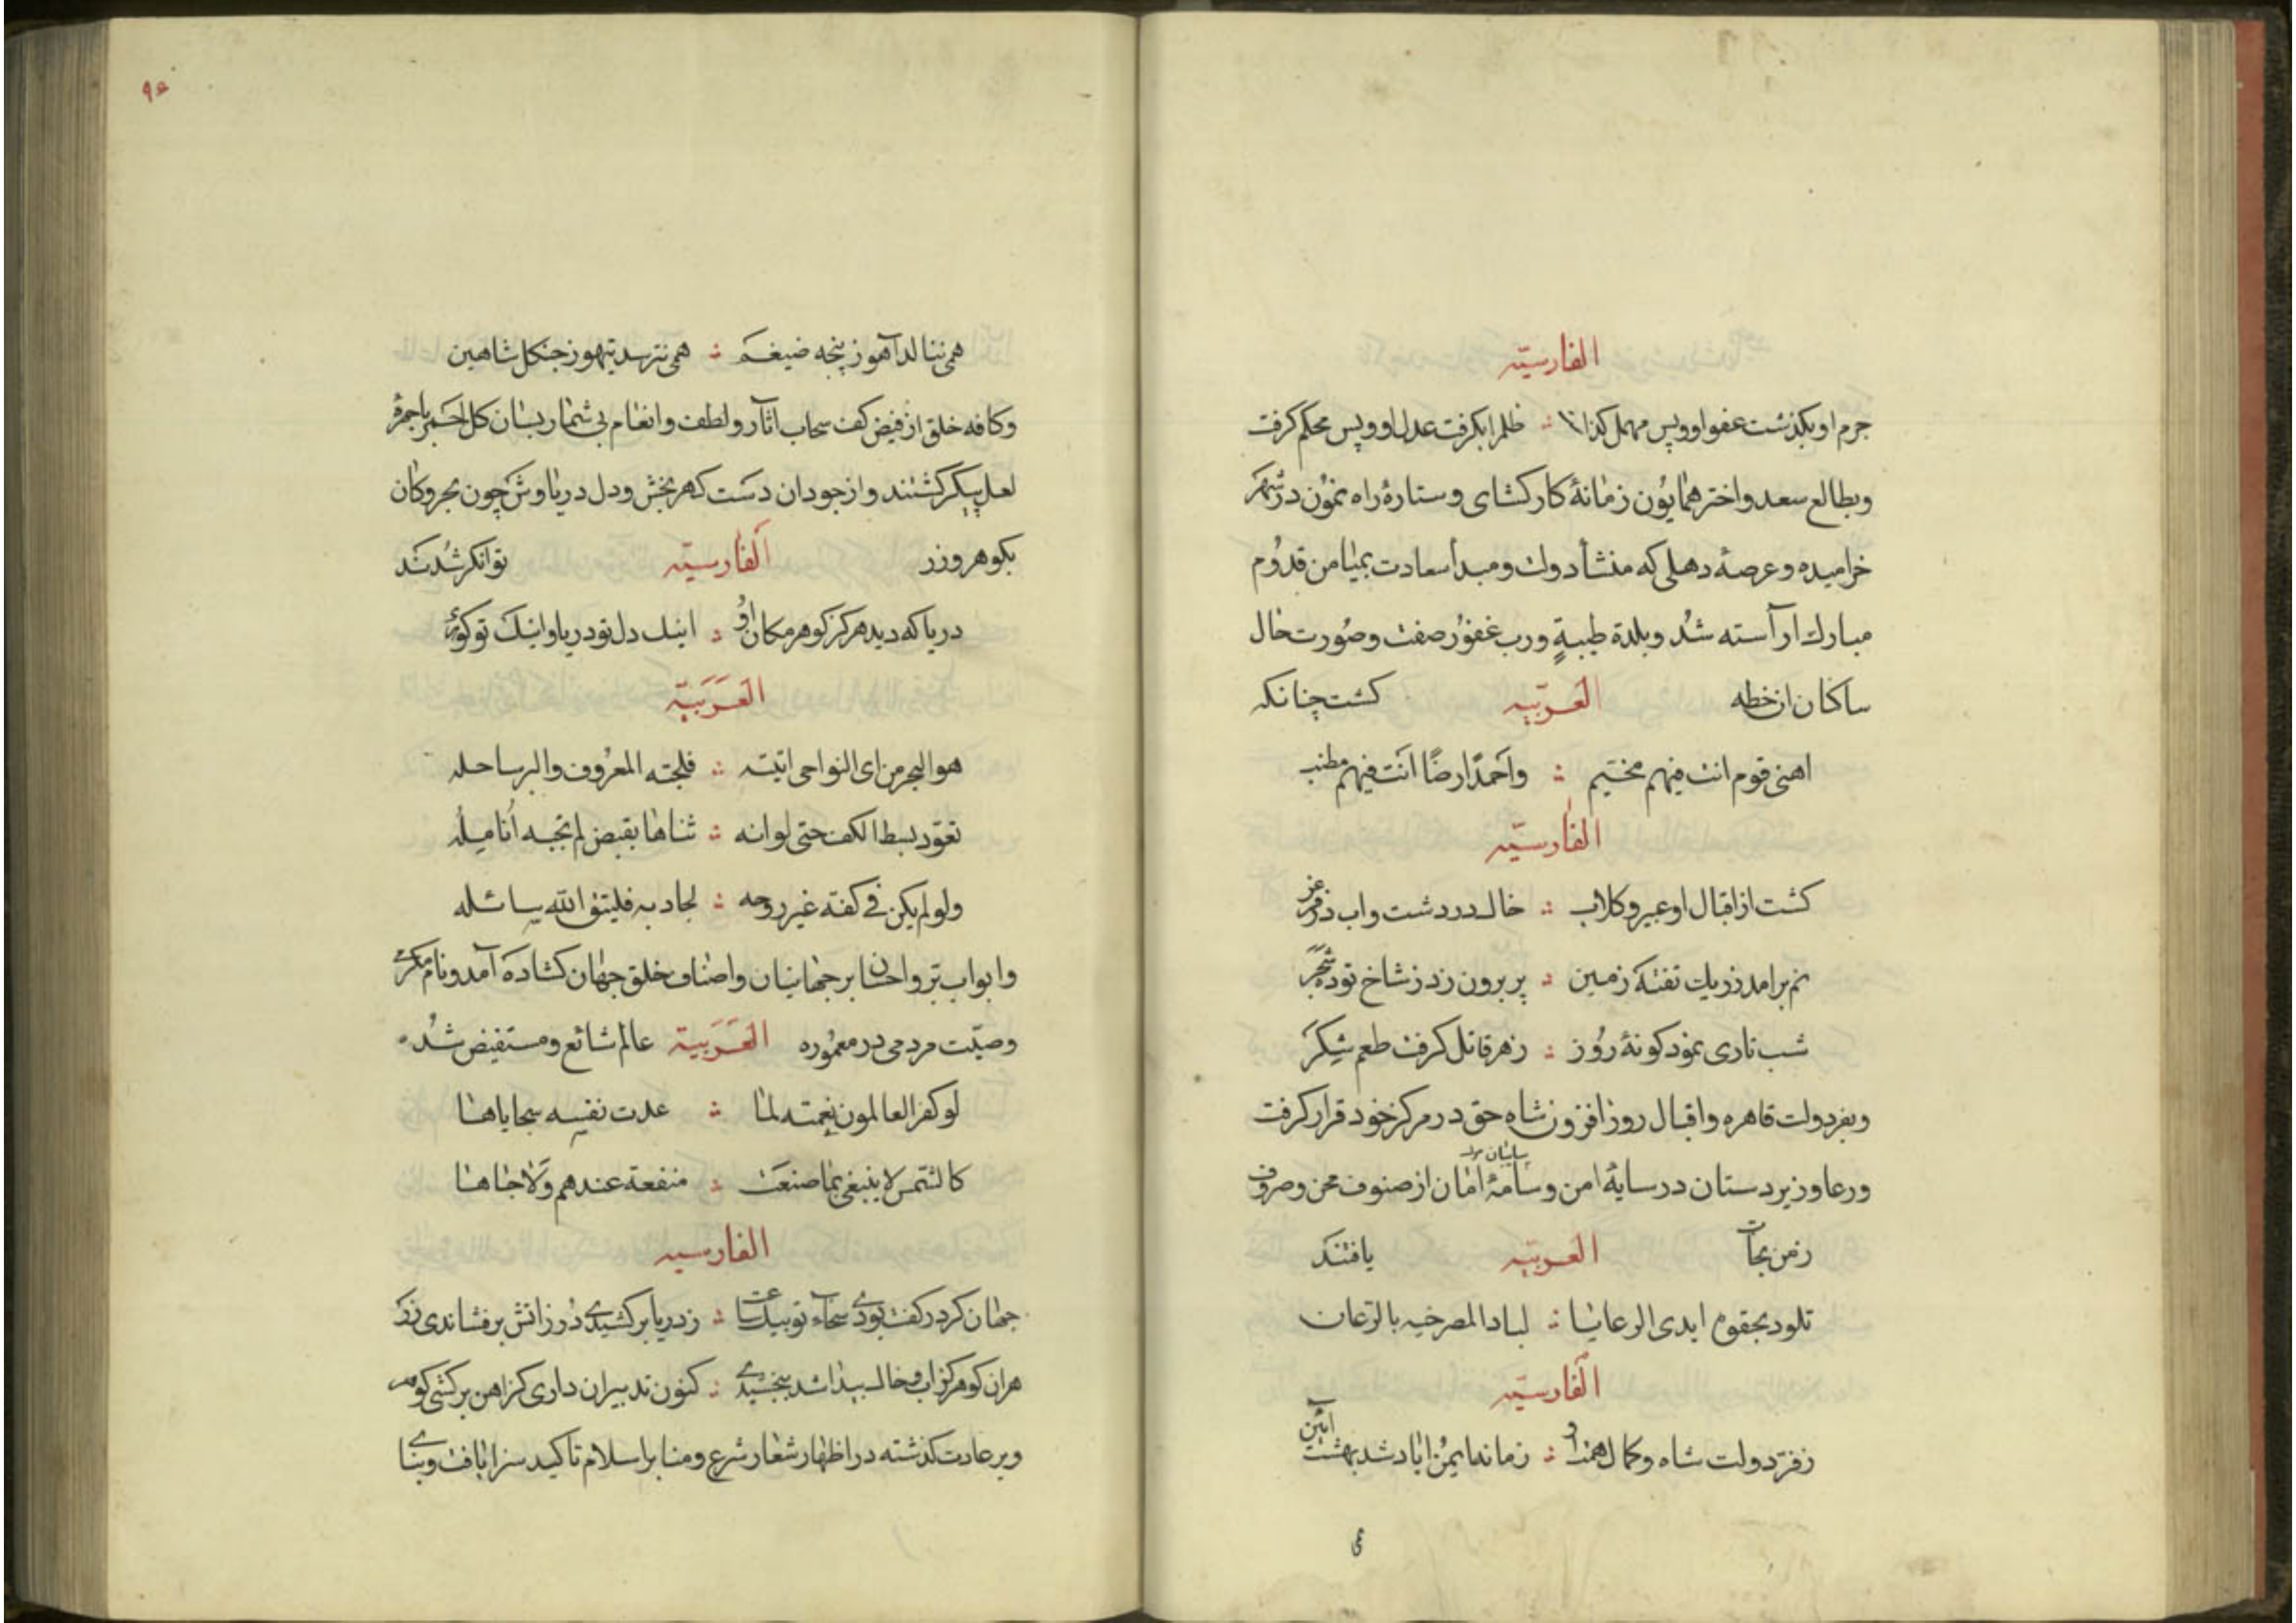 الفارسیّه
جرم او بگذشت عفو او و پس مهمل گذاشت ظلم را بگرفت عدل او و پس محکم گرفت
وبطالع سعد واختر همایون زمانهٔ کار کشای و ستارهٔ راه نمون در شهر
خرامیده و عرصهٔ دهلی که منشأ دولت ومبدأ سعادت بمیامن قدوم
مبارک آراسته شد و بلدة طیبةٍ ورب غفور صفت وصورت حال
ساکنان ان خطه العربیّه کشت چنانکه
اهنی قوم انت فیهم مخیّم واَحمدُ ارضًا اَنت فیهم مطنب
الفارسیّه
کشت از اقبال او عبیر و کلاب خاک در دشت و اب در فرغر
نم برامد ز ریک تفتهٔ زمین پر برون زد ز شاخ توده شجر
شب تاری نمود کونهٔ روز زهر قاتل کرفت طعم شکر
وبفر دولت قاهره واقبال روز افزون شاه حق در مرکز خود قرار کرفت
ورعا و زیر دستان در سایهٔ امن و سامهٔ امان از صنوف محن وصروف
زمن نجات العربیّه یافتند
تلود بحقوه ایدی الرعایا لباد المصرخیه بالرعان
الفارسیّه
ز فرّ دولت شاه و کمال همت او زمانه ایمن اباد شد بهشت ایین
همی ننالد آهو ز پنجه ضیغم همی نترسد تیهو ز چنکل شاهین
وکافه خلق از فیض کف سحاب اثار و لطف وانعام بی شمار بسان کل احمر با چهرهٔ
لعل پیکر کشتند و از جود ان دست کهر بخش و دل دریا وش چون بحر و کان
بکوهر و زر الفارسیّه توانکر شدند
دریا که دید هرکز کوهر مکان او اینک دل تو دریا و اینک تو کوهری
العربیّه
هو البحر من ای النواحی اتیته فلجته المعروف والبر ساحله
تعوّد بسط الکف حتی لو انه ثناها بقبض لم تجبه اَنامله
ولو لم یکن فی کفه غیر روحه لجاد به فلیتق الله سائله
وابواب برّ واحسان بر جهانیان واصناف خلق جهان کشاده آمد و نام مکرمت
وصیّت مردمی در معموره العربیة عالم شائع ومستفیض شد
لو کفر العالمون نعمته لما عدت نفسه سجایاها
کالشمس لا یبتغی بما صنعت منفعة عندهم ولا جاها
الفارسیه
هران کوهر کز اب و خاک پیدا شد ببخشیدی کنون تدبیر ان داری کز اهن برکشی کوهر
وبر عادت کذشته در اظهار شعار شرع ومنابر اسلام تاکید سزا یافت وبنای